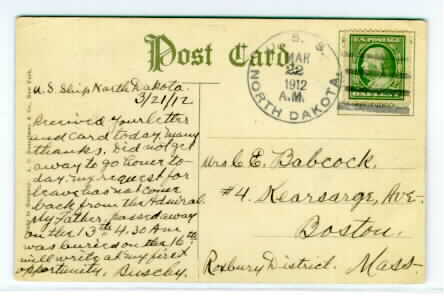 Post Card
U.S. Ship North Dakota.
3/21/12
Received your letter
and card today, many
thanks. Did not get
away to go home to-
day. my request for
leave has not come
back from the Admiral
My father passed away
on the 13th 4.30 A.M.
was buried on the 16th
will write at my first
opportunity.
U. S. S.
MAR
22
1912
A.M.
NORTH DAKOTA.
U.S. POSTAGE
Mrs C. E. Babcock.
#4. Kearsarge, Ave-
Boston.
Roxbury District. Mass.